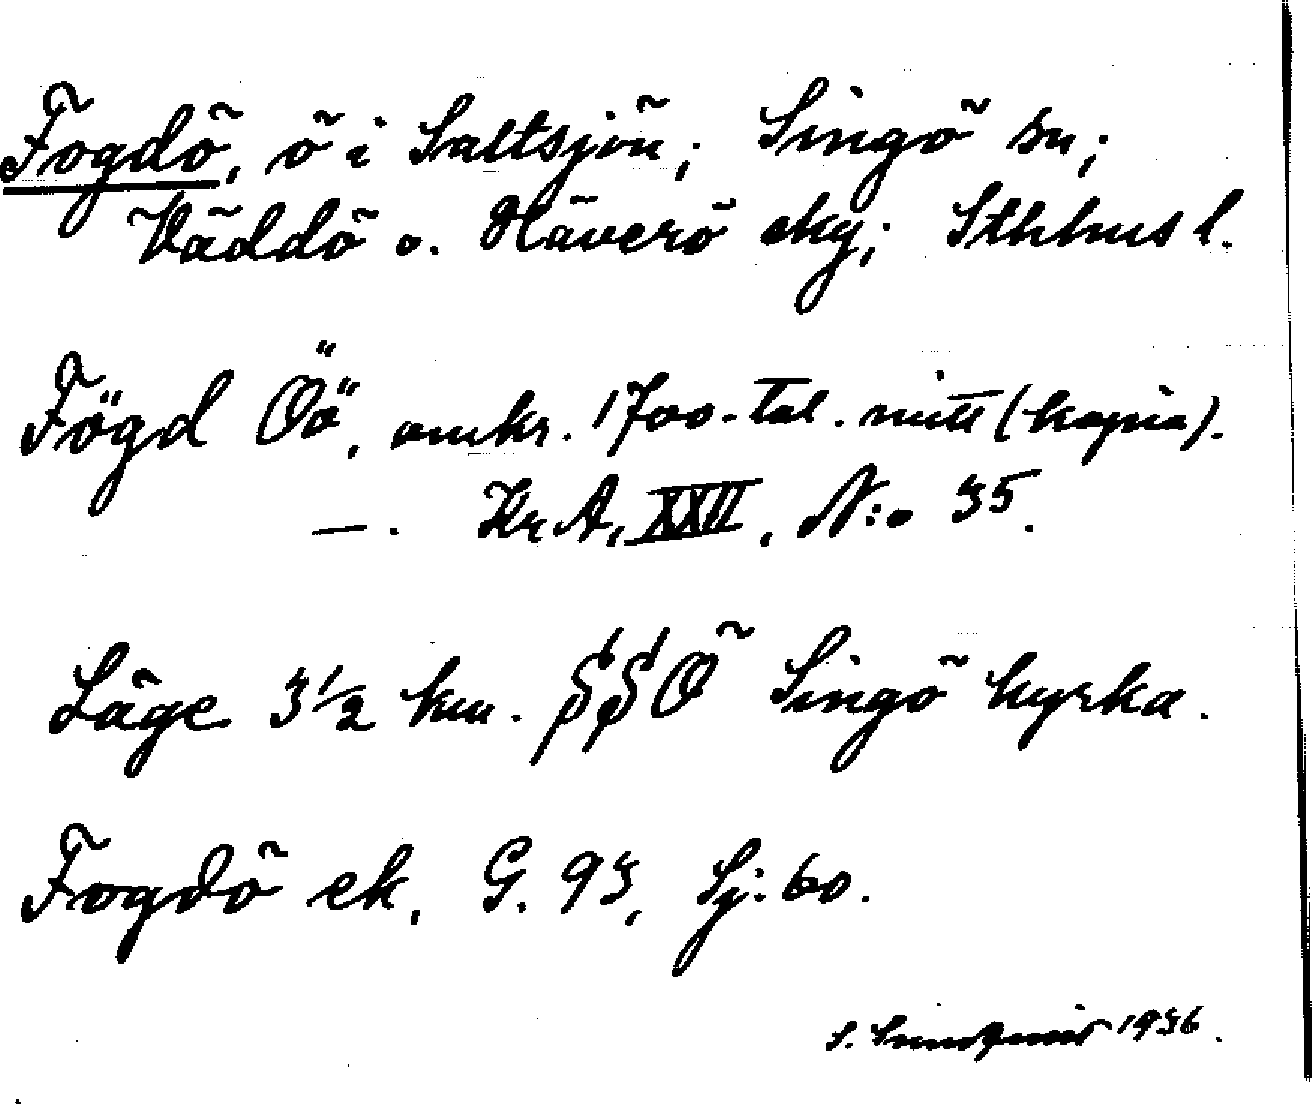 Fogdö, ö i Saltsjön; Singö sn;
Väddö o. Häverö sky; Sthlms l.
Fögd Öö, omkr. 1700-tal. mitt (kopia).
—. Kr A, XXII, N:o 35.
Läge 3 1/2 km. SSÖ Singö kyrka.
Fogdö ek. G. 93, Sj: 60.
S. Sundqvist 1936.